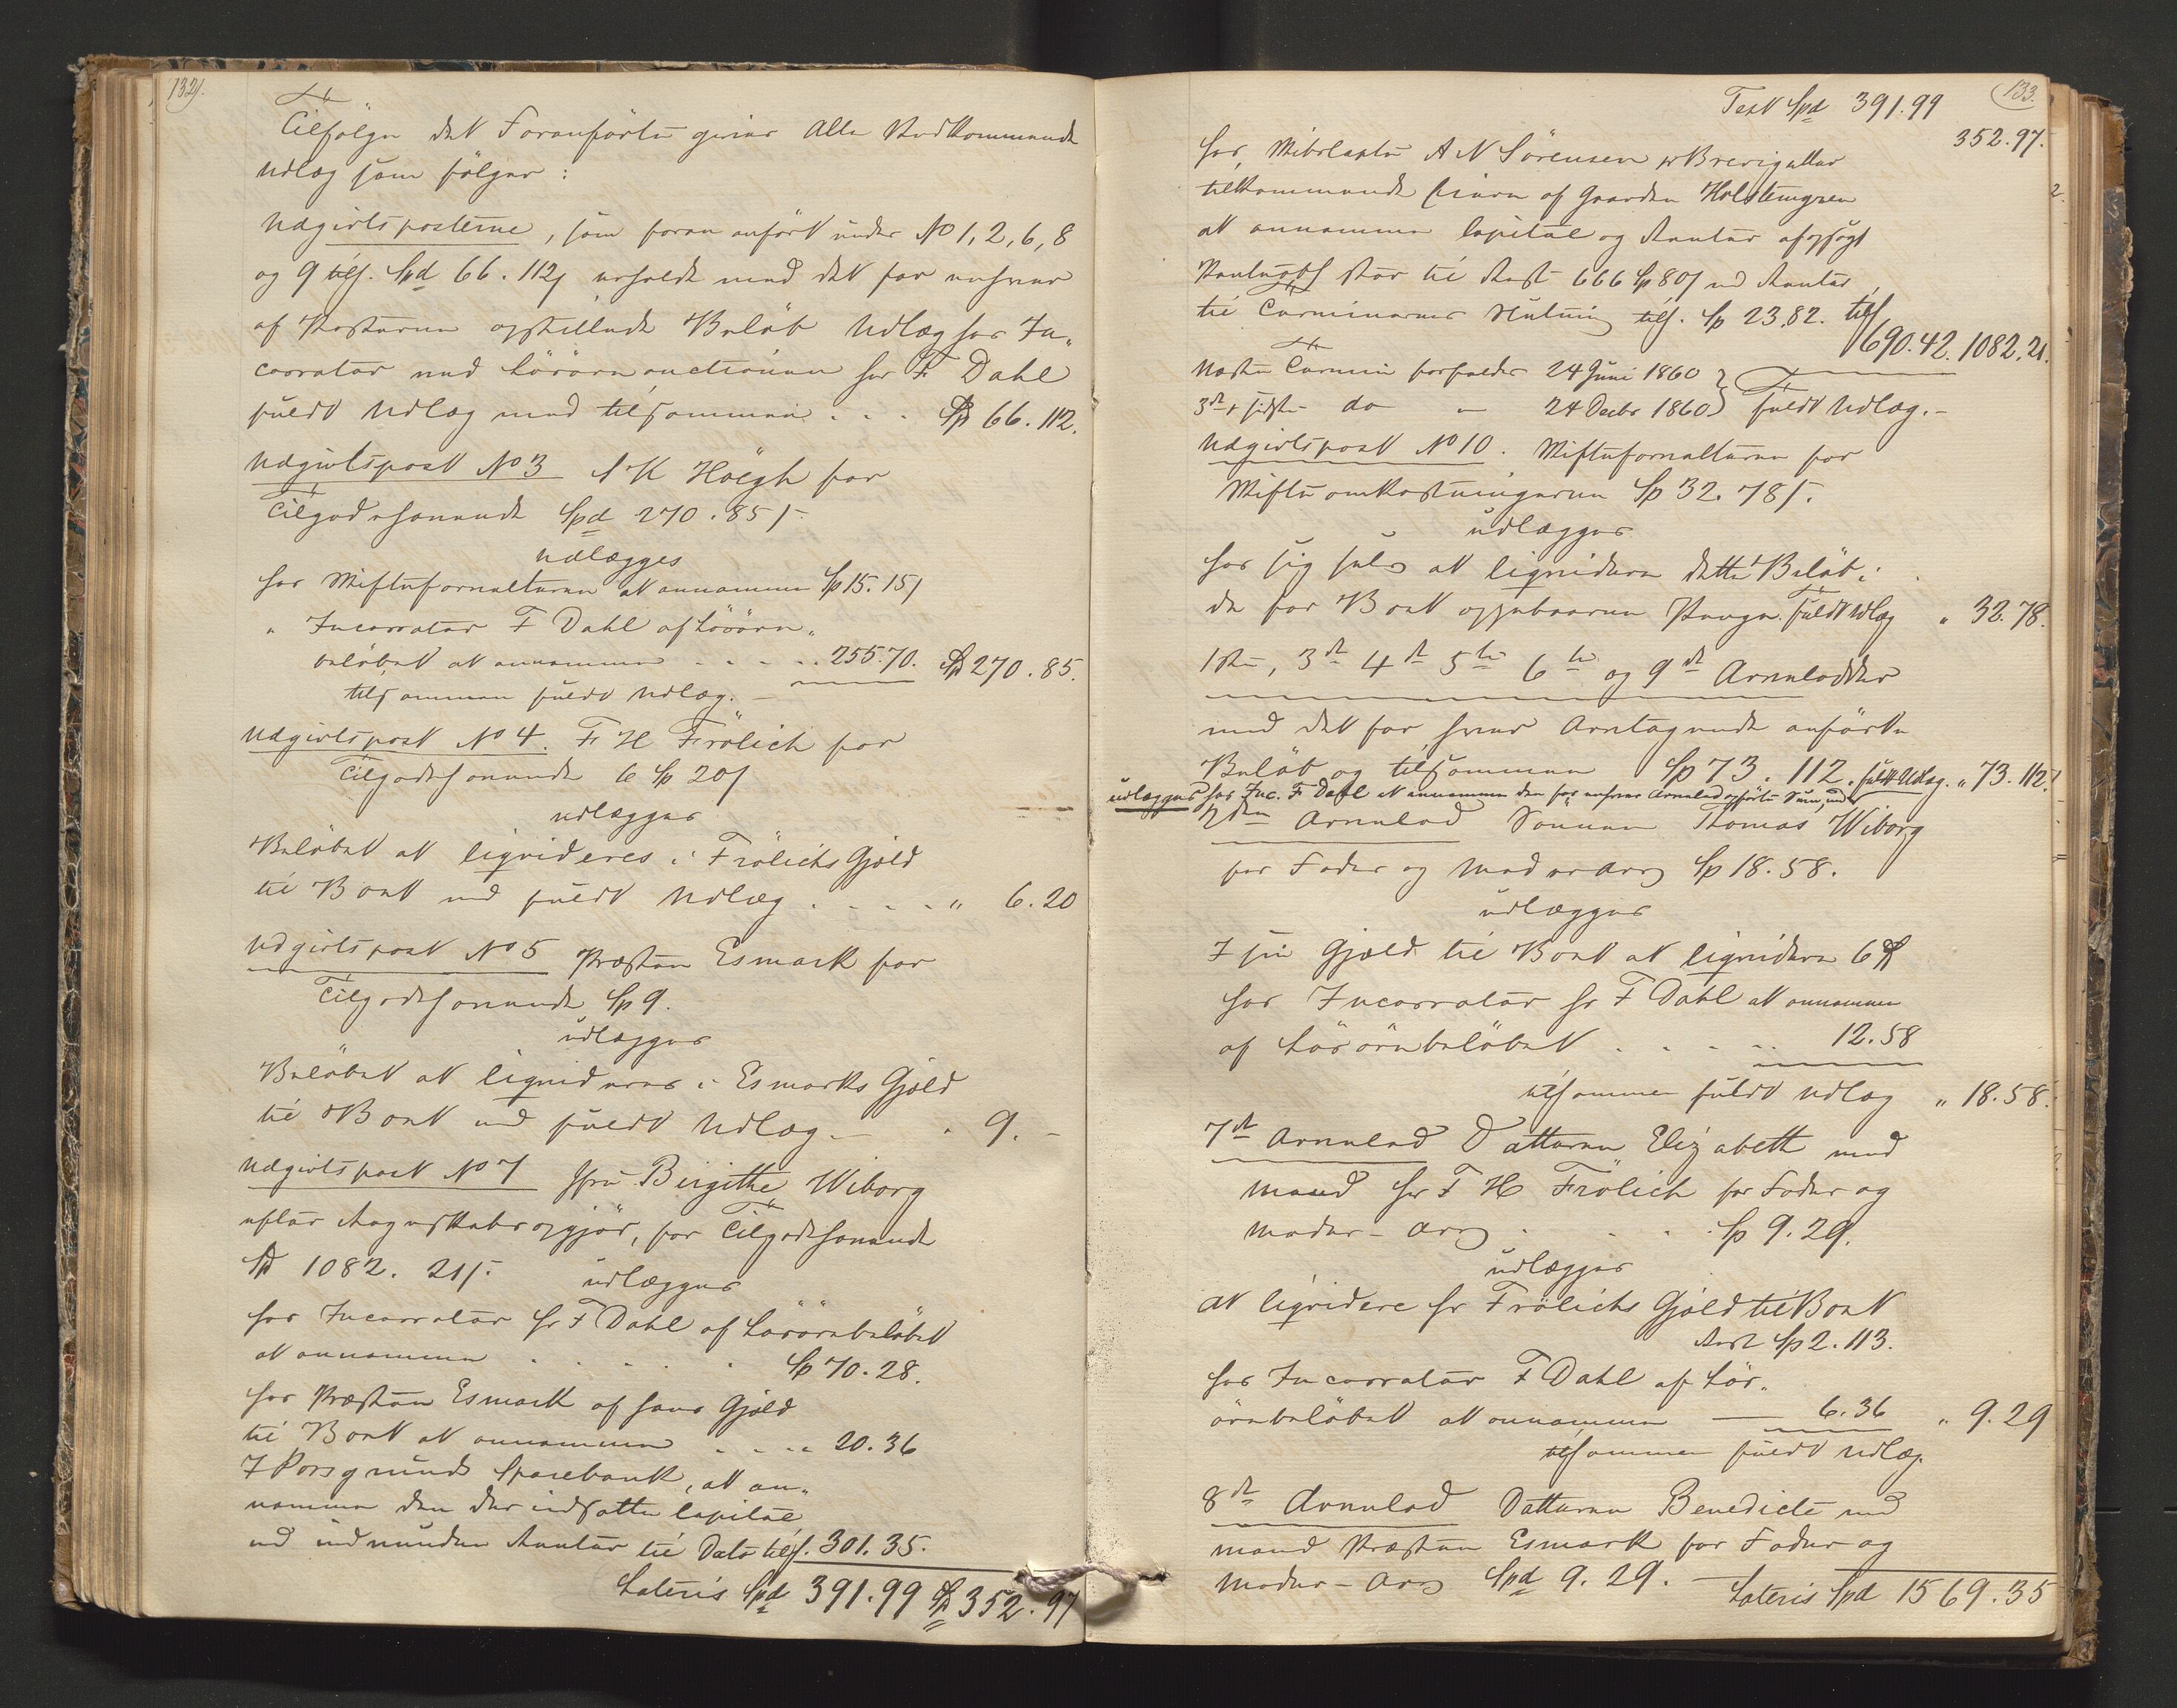 132.
Tilfölge det Foranförte gives Alle Vedkommende
Udlæg som fölger:
Udgivtsposterne, som foran anfört under No 1, 2, 6, 8
og 9 tils. Spd 66. 112 s erholde med det for enhver
af Posterne opstillede Belöb Udlæg hos In-
cassator ved Lösöreauctionen Hr F Dahl
fuldt Udlæg med tilsammen . . . Sp 66. 112.
Udgivtspost No 3 A K Höegh for
Tilgodehavende Spd 270. 85 s.
udlægges
hos Skifteforvalteren at annamme Sp 15. 15 s
" Incassator F Dahl af Lösöre-
belöbet at annamme . . . . . 255. 70. Sp 270. 85.
tilsammen fuldt Udlæg. —
Udgivtspost No 4. F H Frölich for
Tilgodehavende 6 Sp 20 s
udlægges
Belöbet at liqvideres i Frölichs Gjæld
til Boet med fuldt Udlæg . . . . " 6. 20
Udgivtspost No 5 Præsten Esmark for
Tilgodehavende Sp 9.
udlægges
Belöbet at liqvideres i Esmarks Gjæld
til Boet med fuldt Udlæg — " 9. –
Udgivtspost No 7 Jfru Birgithe Wiborg
efter Regnskabsopgjör, for Tilgodehavende
Sp 1082. 21 s. udlægges
hos Incassator Hr F Dahl af Lösörebelöbet
at annamme . . . . . Sp 70. 28.
hos Præsten Esmark af hans Gjæld
til Boet at annamme . . . . 20. 36
I Porsgrunds Sparebank, at an-
namme den der indsatte Capital
med indvunden Renter til Dato tils. 301. 35.
Lateris Spd 391. 99 Sp 352. 97
133.
Text Spd 391. 99
352. 97.
hos A N Sörensen
tilkommende af Gaarden
at annamme Capital og Renter
staar til Rest 666 Sp 80 s med Renter
til Terminernes Slutning tils. Sp 23, 82. tils
690. 42. 1082. 21.
Næste Termin forfalder 24 Juni 1860
3de & sidste do — 24 Decbr 1860 } fuldt Udlæg. –
Udgivtspost No 10. Skifteforvalteren for
Skifteomkostningerne Sp 32. 78 s.
udlægges
hos sig selv at liqvidere dette Belöb i
de for Boet oppebaarne Penge. fuldt Udlæg " 32. 78.
1ste, 3de 4de 5te 6te og 9de Arvelodder
med det for hver Arvtagende anförte
Belöb og tilsammen Sp 73. 112. fuldt Udlæg. " 73. 112.
udlægges hos Inc. F Dahl at annamme den for enhver Arvelod opförte Sum, med
2den Arvelod Sönnen Thomas Wiborg
for Fader og Moder Arv Sp 18. 58.
udlægges
I sin Gjæld til Boet at liqvidere 6 Sp
hos Incassator Hr F Dahl at annamme
af Lösörebelöbet . . . . . 12. 58
tilsammen fuldt Udlæg " 18. 58.
7de Arvelod Datteren Elizabeth med
Mand Hr F H Frölich for Fader og
Moder - Arv . . . . Sp 9. 29.
udlægges
at liqvidere Hr Frölichs Gjæld til Boet
Rest Sp 2. 113.
hos Incassator F Dahl af Lös-
örebelöbet at annamme — 6. 36 " 9. 29
tilsammen fuldt Udlæg.
8de Arvelod Datteren Benedicte med
Mand Præsten Esmark for Fader og
Moder - Arv Spd 9. 29. —
Lateris Spd 1569. 35